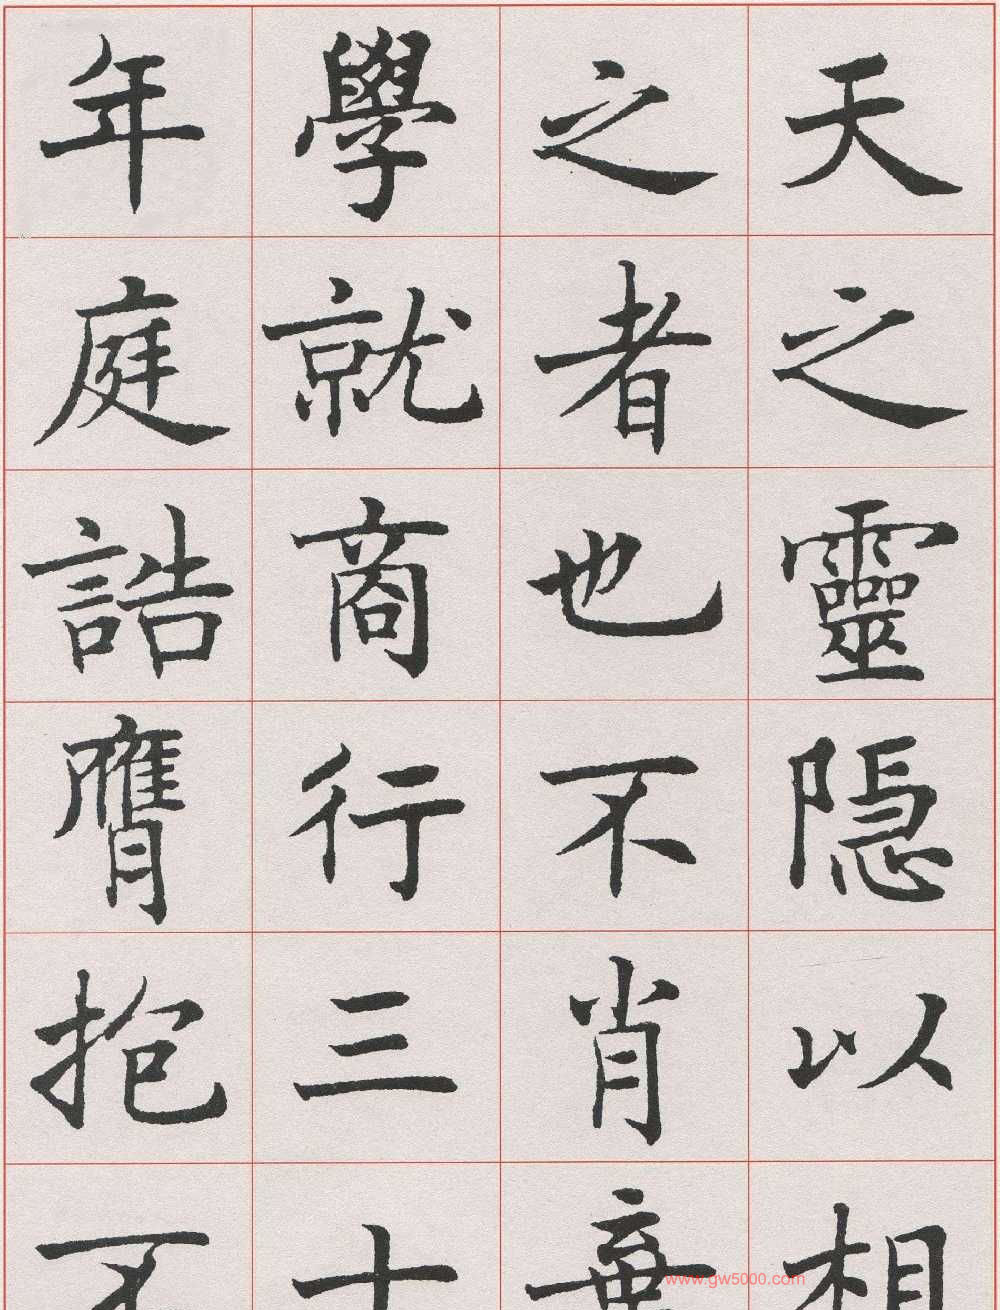 天之靈隱以相
之者也不肖棄
學就商行三十
年庭誥膺抱不
www.gw5000.com